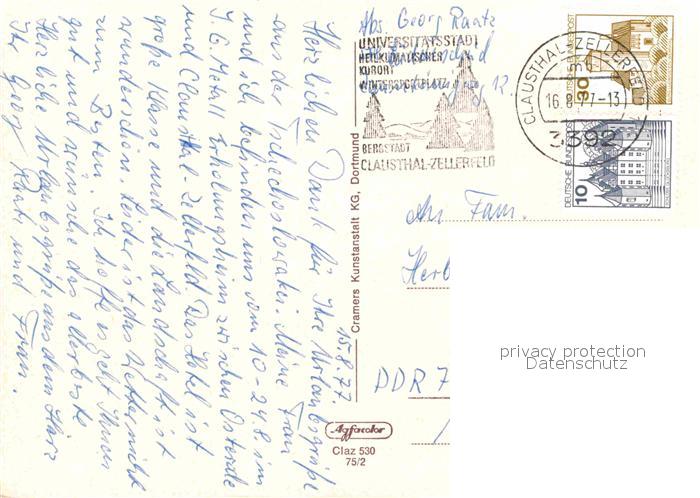 15.8.77.
Herzlichen Dank für Ihre Urlaubsgrüße
aus der Tschechoslowakei. Meine Frau
und ich befinden uns vom 10-24.8. im
I.G. Metall Erholungsheim zwischen Osterode
und Clausthal-Zellerfeld Das Hotel ist
große Klasse und die Landschaft ist
Leider ist das Wetter nicht
zum Besten. Ich hoffe es geht Ihnen
gut und wünsche das allerbeste
Herzliche Urlaubsgrüße aus dem Harz
Ihr Georg Raatz und Frau.
Abs. Georg Raatz
12
UNIVERSITÄTSSTADT
HEILKLIMATISCHER
KURORT
WINTERSPORTPLATZ
BERGSTADT
CLAUSTHAL-ZELLERFELD
CLAUSTHAL-ZELLERFELD 1
mb
16.8.77-13
3392
DEUTSCHE BUNDESPOST
30
DEUTSCHE BUNDESPOST
10
An Fam.
Herb
DDR 7
Cramers Kunstanstalt KG, Dortmund
Agfacolor
Claz 530
75/2
privacy protection
Datenschutz